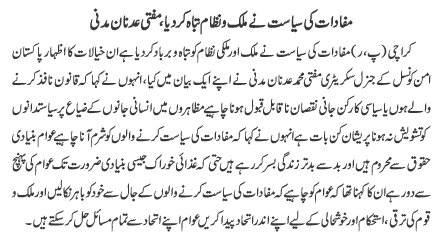 مفادات کی سیاست نے ملک و نظام تباہ کر دیا، مفتی عدنان مدنی
کراچی (پ،ر) مفادات کی سیاست نے ملک اور ملکی نظام کو تباہ و برباد کر دیا ہے ان خیالات کا اظہار پاکستان
امن کونسل کے جنرل سکریٹری مفتی محمد عدنان مدنی نے اپنے ایک بیان میں کیا، انہوں نے کہا کہ قانون نافذ کرنے
والے ہوں یا سیاسی کارکن جانی نقصان ناقابل قبول ہونا چاہیے مظاہروں میں انسانی جانوں کے ضیاع پر سیاستدانوں
کو تشویش نہ ہونا پریشان کن بات ہے انہوں نے کہا کہ مفادات کی سیاست کرنے والوں کو شرم آنا چاہیے عوام بنیادی
حقوق سے محروم ہیں اور بد سے بدتر زندگی بسر کر رہے ہیں حتی کہ غذائی خوراک جیسی بنیادی ضرورت تک عوام کی پہنچ
سے دور ہے ان کا کہنا تھا کہ عوام کو چاہیے کہ مفادات کی سیاست کرنے والوں کے جال سے خود کو باہر نکالیں اور ملک و
قوم کی ترقی، استحکام اور خوشحالی کے لیے اپنے اندر اتحاد پیدا کریں عوام اپنے اتحاد سے تمام مسائل حل کر سکتے ہیں۔